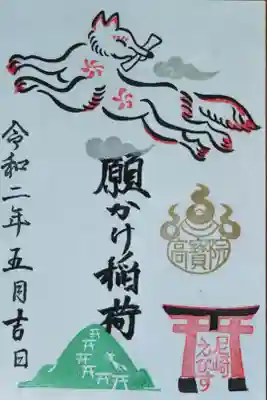 願かけ稲荷
令和二年五月吉日
尼崎
えびす